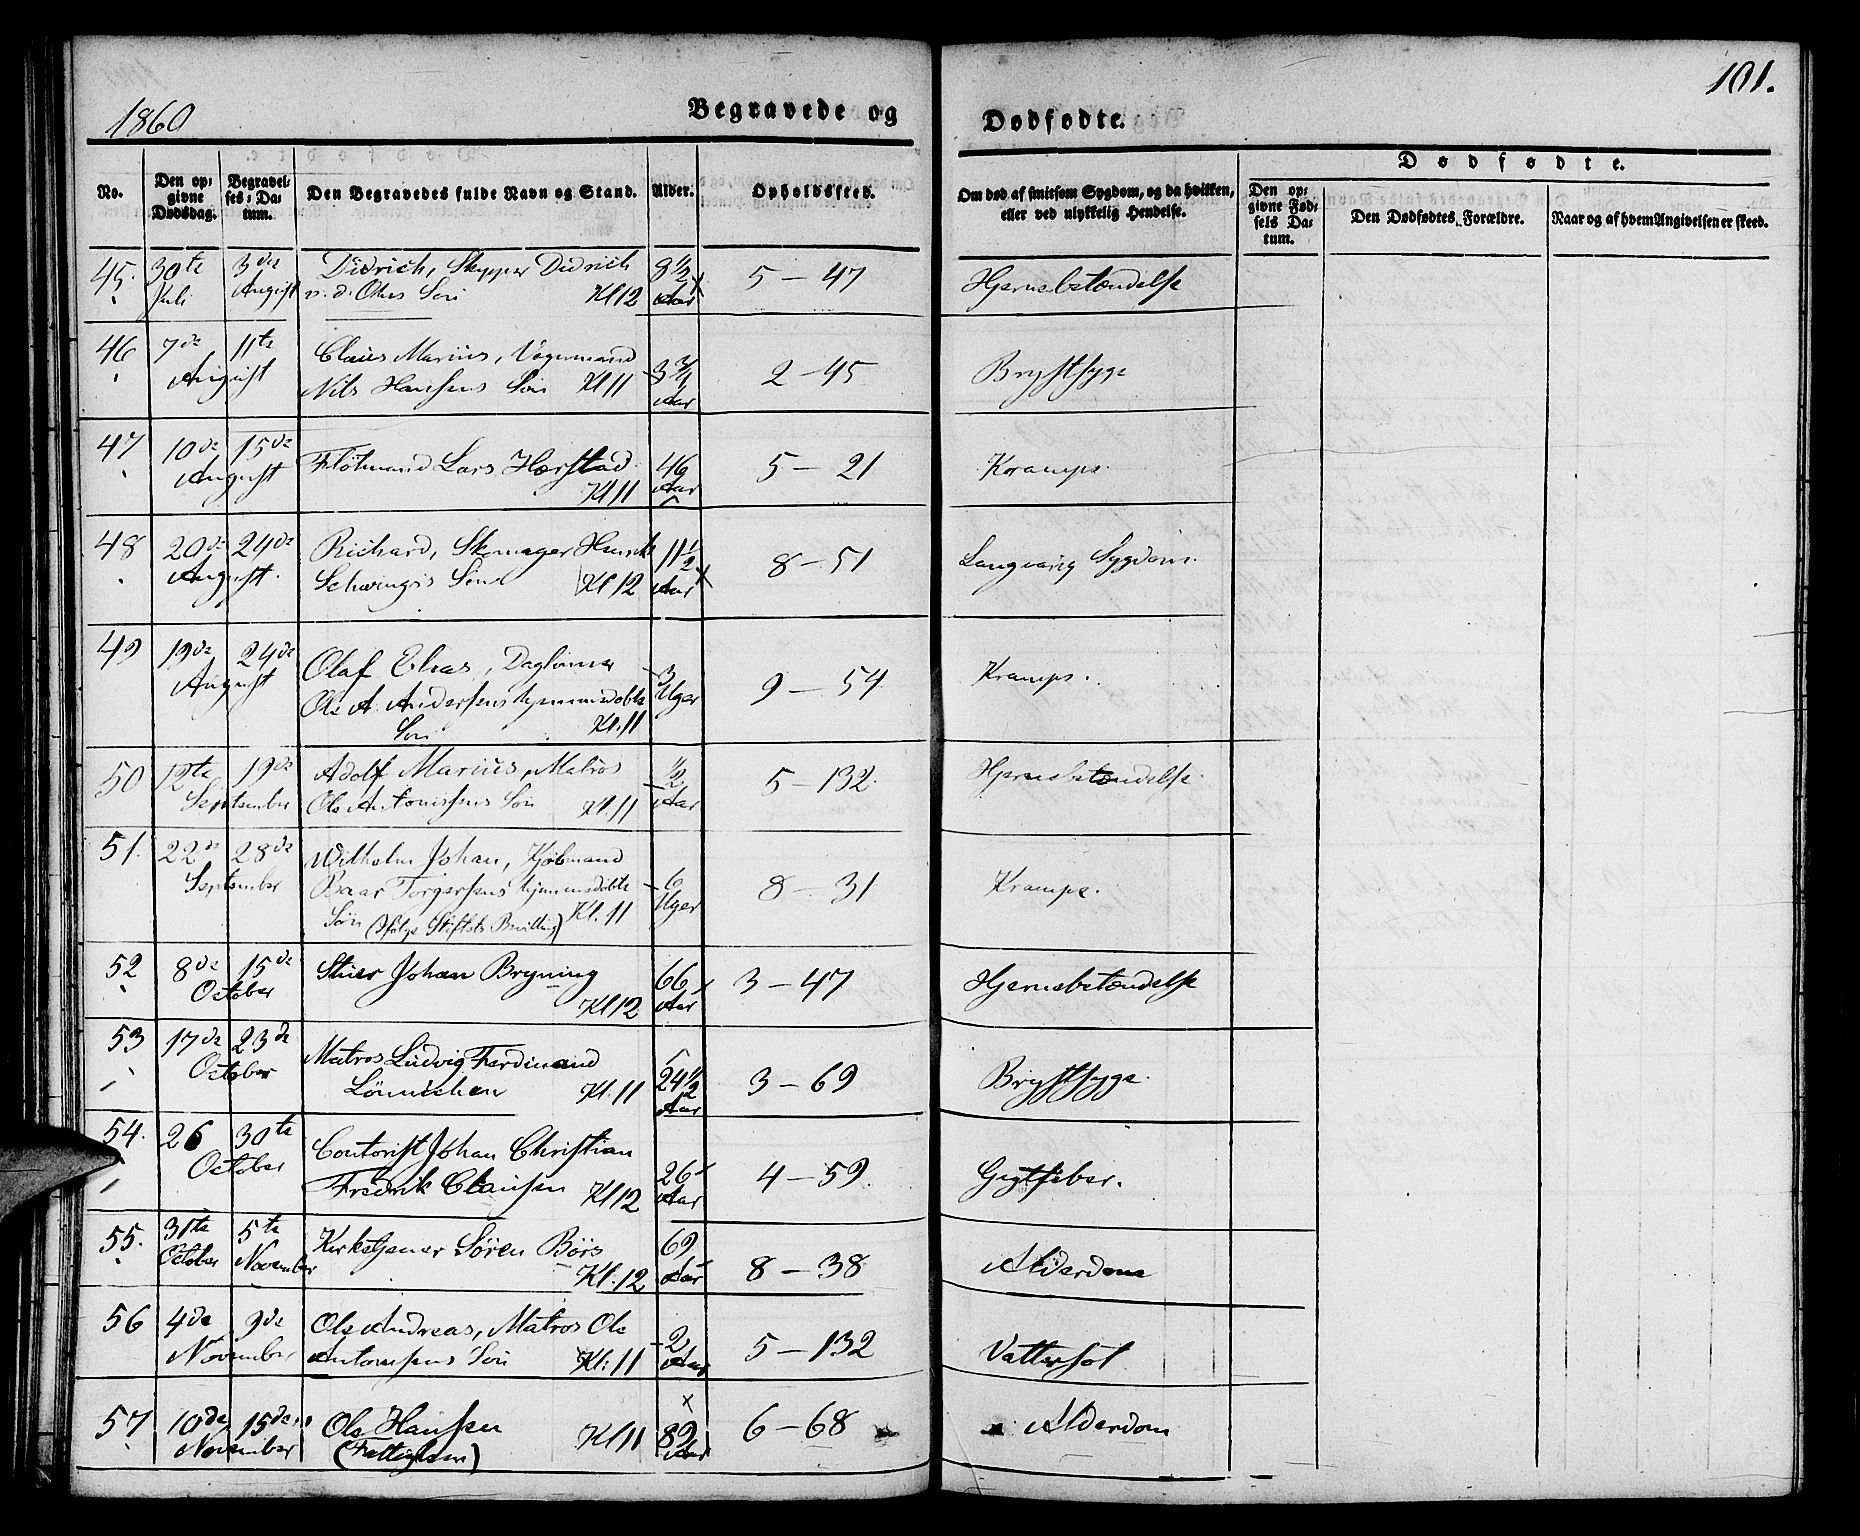 1860
Begravede og
Dødfødte.
101.
No.
Den opgivne Dødsdag.
Begravelses-Datum.
Den Begravedes fulde Navn og Stand.
Alder.
Opholdssted.
Om død af smitsom Sygdom, og da hvilken, eller ved ulykkelig Hendelse.
Dødfødte.
Den opgivne Fødsels Datum.
Den Dødfødtes Forældre.
Naar og af hvem Angivelsen er skeed.
45. 30te 3die Didrich, Skypper Didrich 9 1/2 5 – 47 Hjernebetændelse
Juli August v. d. Ohes Søn Kl 12 Aar
46 7de 11te Claus Marius, Vognmand 3 3/4 2 – 45 Brystsyge
August Nils Hansens Søn Kl 11 Aar
47 10de 15de Flötmand Lars Hærstad 46 5 – 21 Kramps.
August Kl 11 Aar
48 20de 24de Richard, Skomager Henrik 11 1/2 8 – 51 Langvarig Sygdom.
August. Schwingis Søn Kl 12 Aar
49 19de 24de Olaf Elias, Daglönner 3 9 – 54 Kramps.
August Ole A. Andersens hjemmedøbte Uger
Søn Kl. 11
50 12te 19de Adolf Marius, Matros 1/2 5 – 132. Hjernebetændelse
September Ole Antonisens Søn Kl. 11 Aar
51. 22de 28de Wilhelm Johan, Kjöbmand 6 8 – 31 Kramps.
September Baar Torgersens hjemmedøbte Uger
Søn (ifølge Stiftets Bevilling) Kl. 11
52 8de 15de Johan Bryning 66 3 – 47 Hjernebetændelse
October Kl 12 Aar
53 17de 23de Matros Ludvig Ferdinand 24 1/2 3 – 69 Brystsyge.
October Kl. 11 Aar
54. 26 30te Contorist Johan Christian 26 4 – 59. Gigtfeber.
October Fredrik Clausen Kl 12 Aar
55. 31te 5te Kirketjener Søren Börs 69 8 – 38 Alderdom
October November Kl. 12 Aar
56 4de 9de Ole Andreas, Matros Ole 2 5 – 132 Vattersot
November Antonisens Søn Kl: 11 Aar
57 10de 15de Ole Hansen 89 6 – 68 Alderdom
November (Fattiglem) Kl 11 Aar